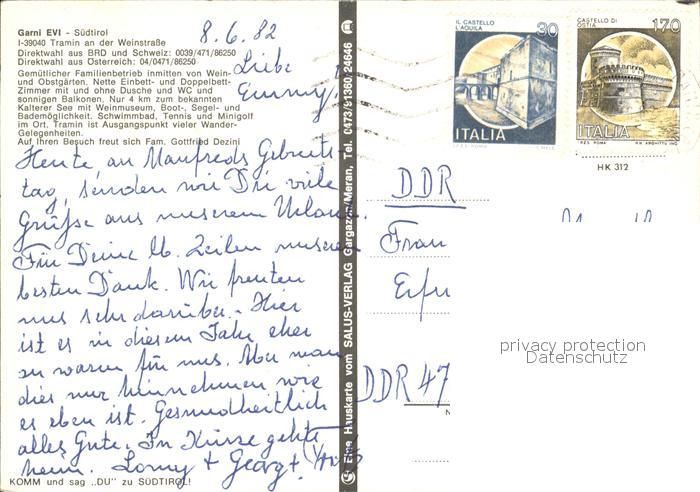 Garni EVI - Südtirol
I-39040 Tramin an der Weinstraße
Direktwahl aus BRD und Schweiz: 0039/471/86250
Direktwahl aus Österreich: 04/0471/86250
Gemütlicher Familienbetrieb inmitten von Wein-
und Obstgärten. Nette Einbett- und Doppelbett-
Zimmer mit und ohne Dusche und WC und
sonnigen Balkonen. Nur 4 km zum bekannten
Kalterer See mit Weinmuseum, Boot-, Segel- und
Bademöglichkeit. Schwimmbad, Tennis und Minigolf
im Ort, Tramin ist Ausgangspunkt vieler Wander-
Gelegenheiten.
Auf Ihren Besuch freut sich Fam. Gottfried Dezini
8.6.82
Liebe
Emmy,
Heute an Manfreds Geburts-
tag, senden wir Dir viele
Grüße aus unserem Urlaub.
Für Deine lb. Zeilen unseren
besten Dank. Wir freuten
uns sehr darüber. Hier
ist es in diesem Jahr eher
zu warm für uns. Aber man
dies nur hinnehmen wie
es eben ist. Gesundheitlich
alles Gute. In Kürze geht's
heim. Lonny + Georg +
KOMM und sag „DU" zu SÜDTIROL!
Eine Hauskarte vom SALUS-VERLAG Gargazon/Meran, Tel. 0473/91360/24646
IL CASTELLO
L'AQUILA
30
ITALIA
CASTELLO DI
OSTIA
170
ITALIA
HK 312
DDR
Frau
Erfu
DDR 47
privacy protection
Datenschutz